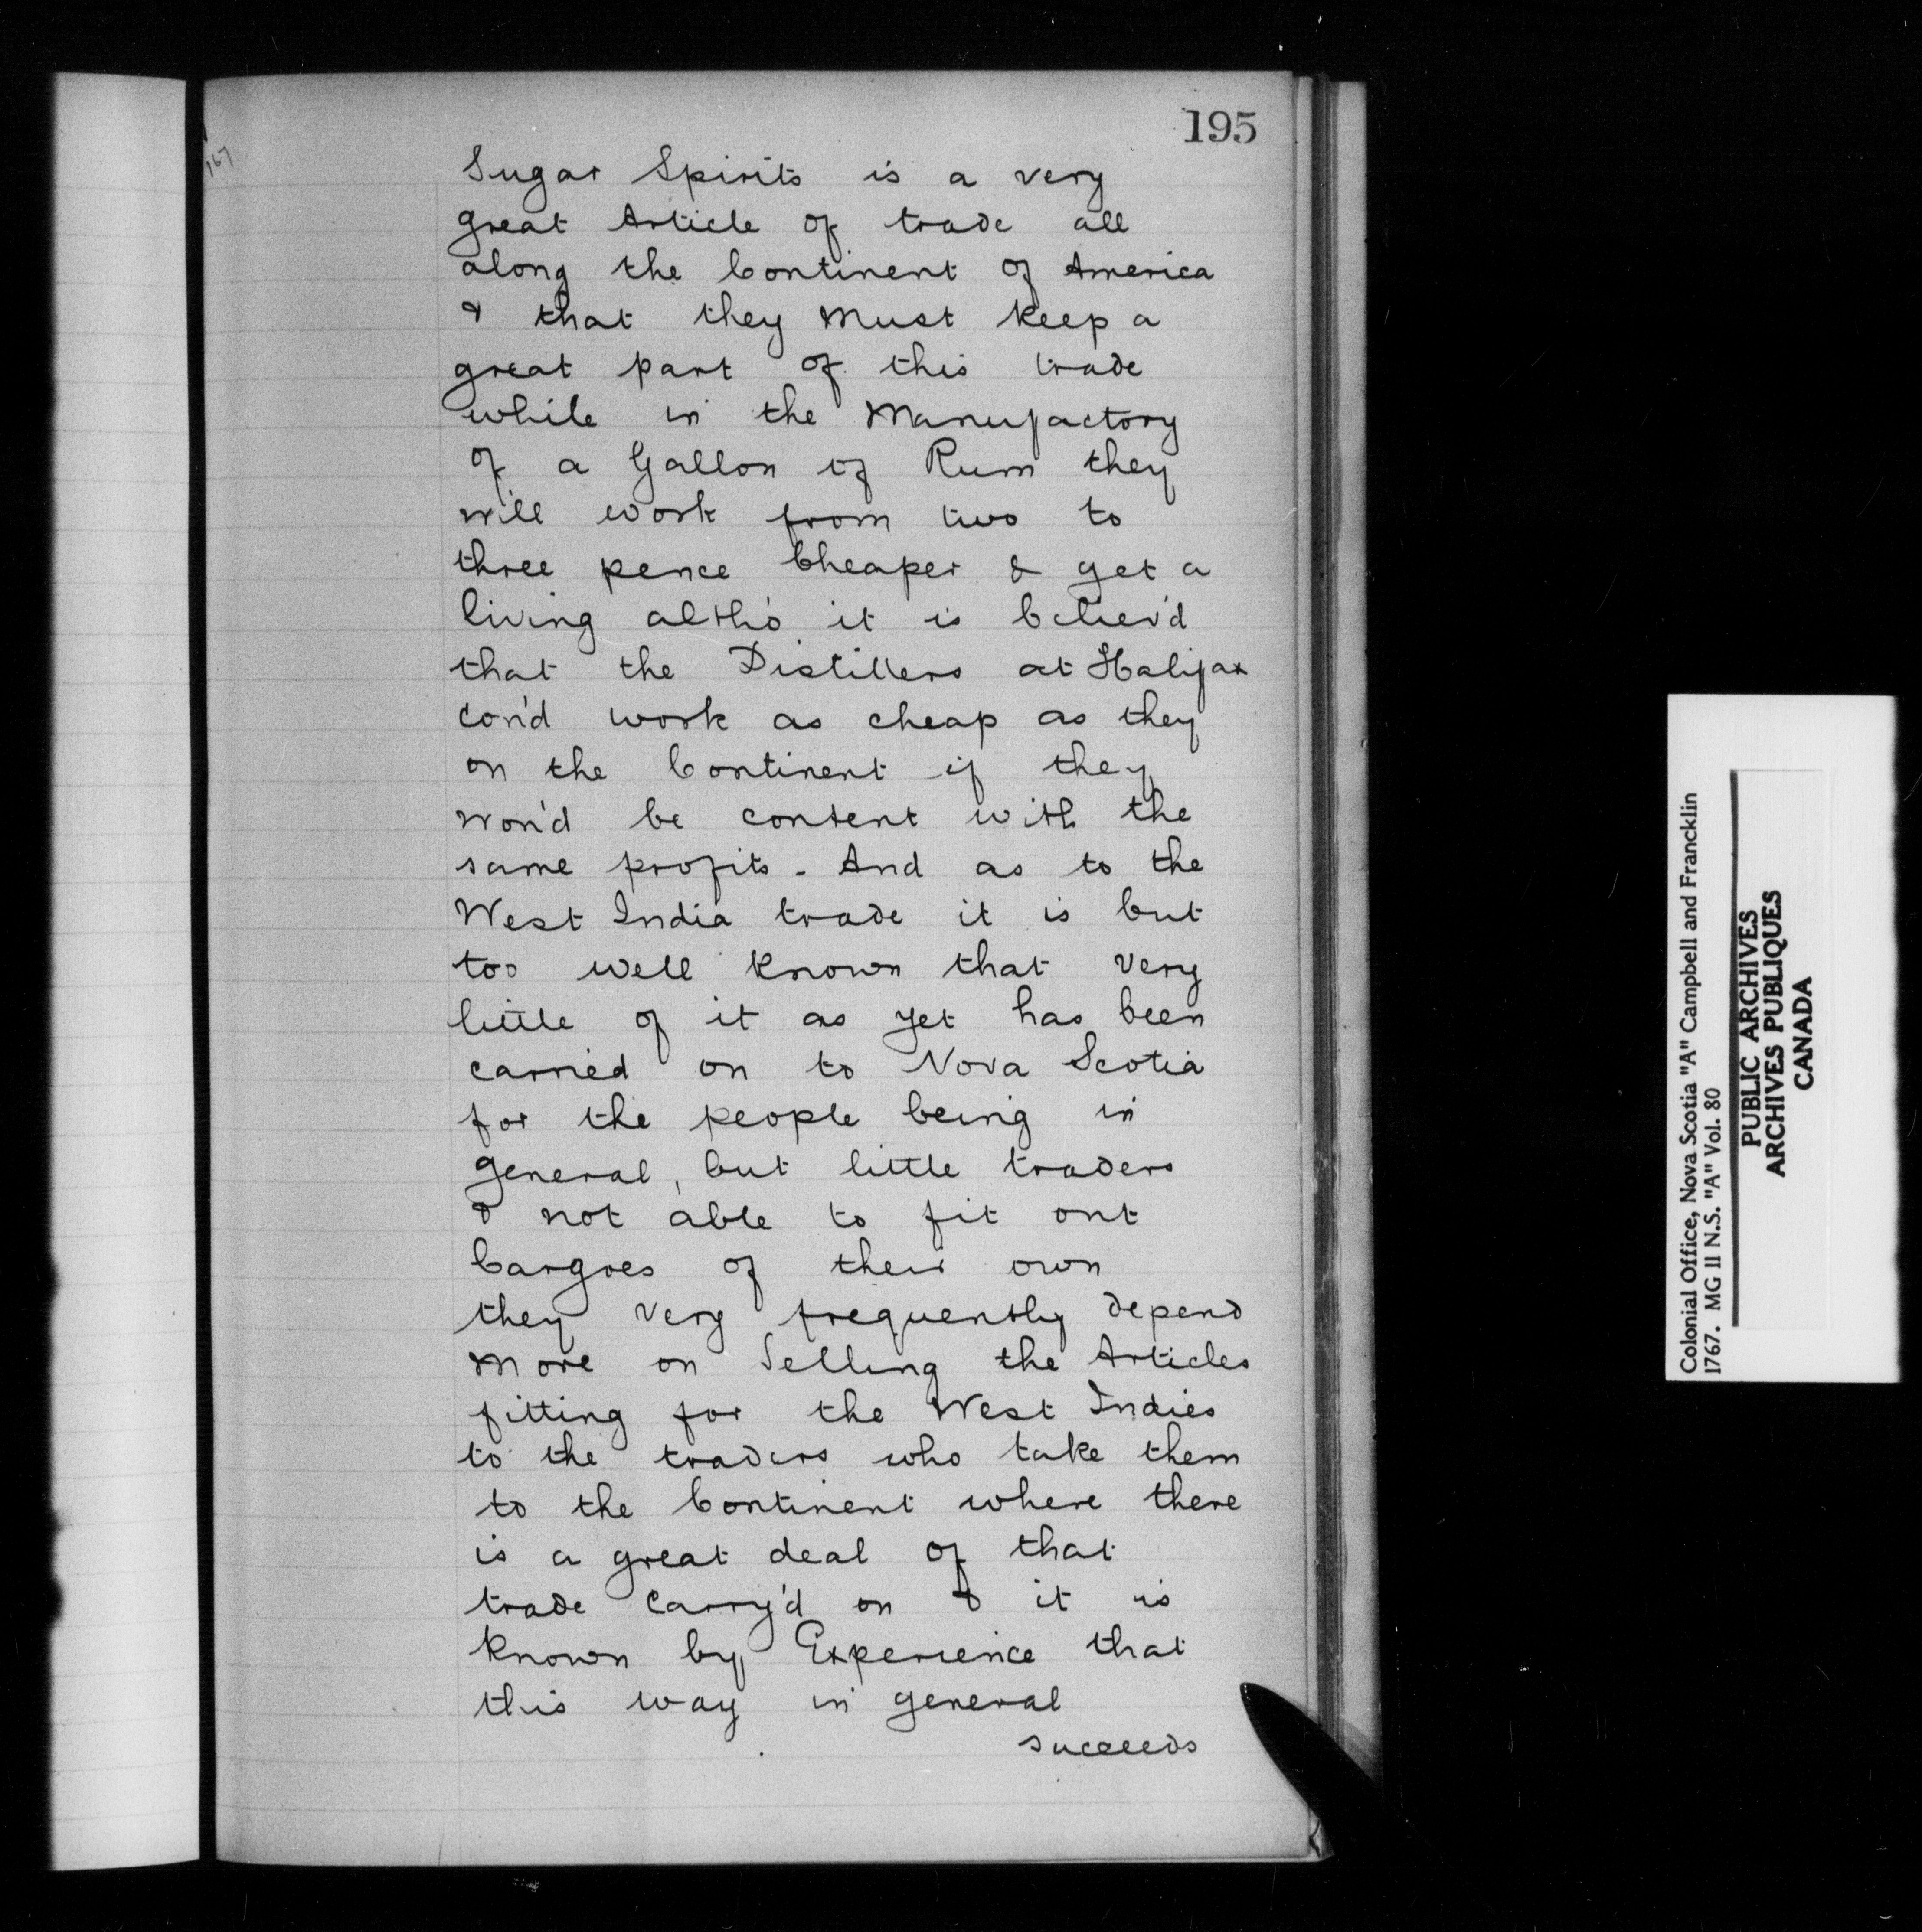 195
167
Sugar Spirits is a very
great Article of trade all
along the Continent of America
& that they Must keep a
great part of this trade
while in the Manufactory
of a Gallon of Rum they
will work from two to
three pence Cheaper & get a
living altho' it is believ'd
that the Distillers at Halifax
cou'd work as cheap as they
on the Continent if they
wou'd be content with the
same profits - And as to the
West India trade it is but
too well known that very
little of it as yet has been
carried on to Nova Scotia
for the people being in
general, but little traders
& not able to fit out
Cargoes of their own
they very frequently depend
More on Selling the Articles
fitting for the West Indies
to the traders who take them
to the Continent where there
is a great deal of that
trade Carry'd on & it is
known by Experience that
this way in general
succeeds
Colonial Office, Nova Scotia "A" Campbell and Francklin
1767. MG 11 N.S. "A" Vol. 80
PUBLIC ARCHIVES
ARCHIVES PUBLIQUES
CANADA